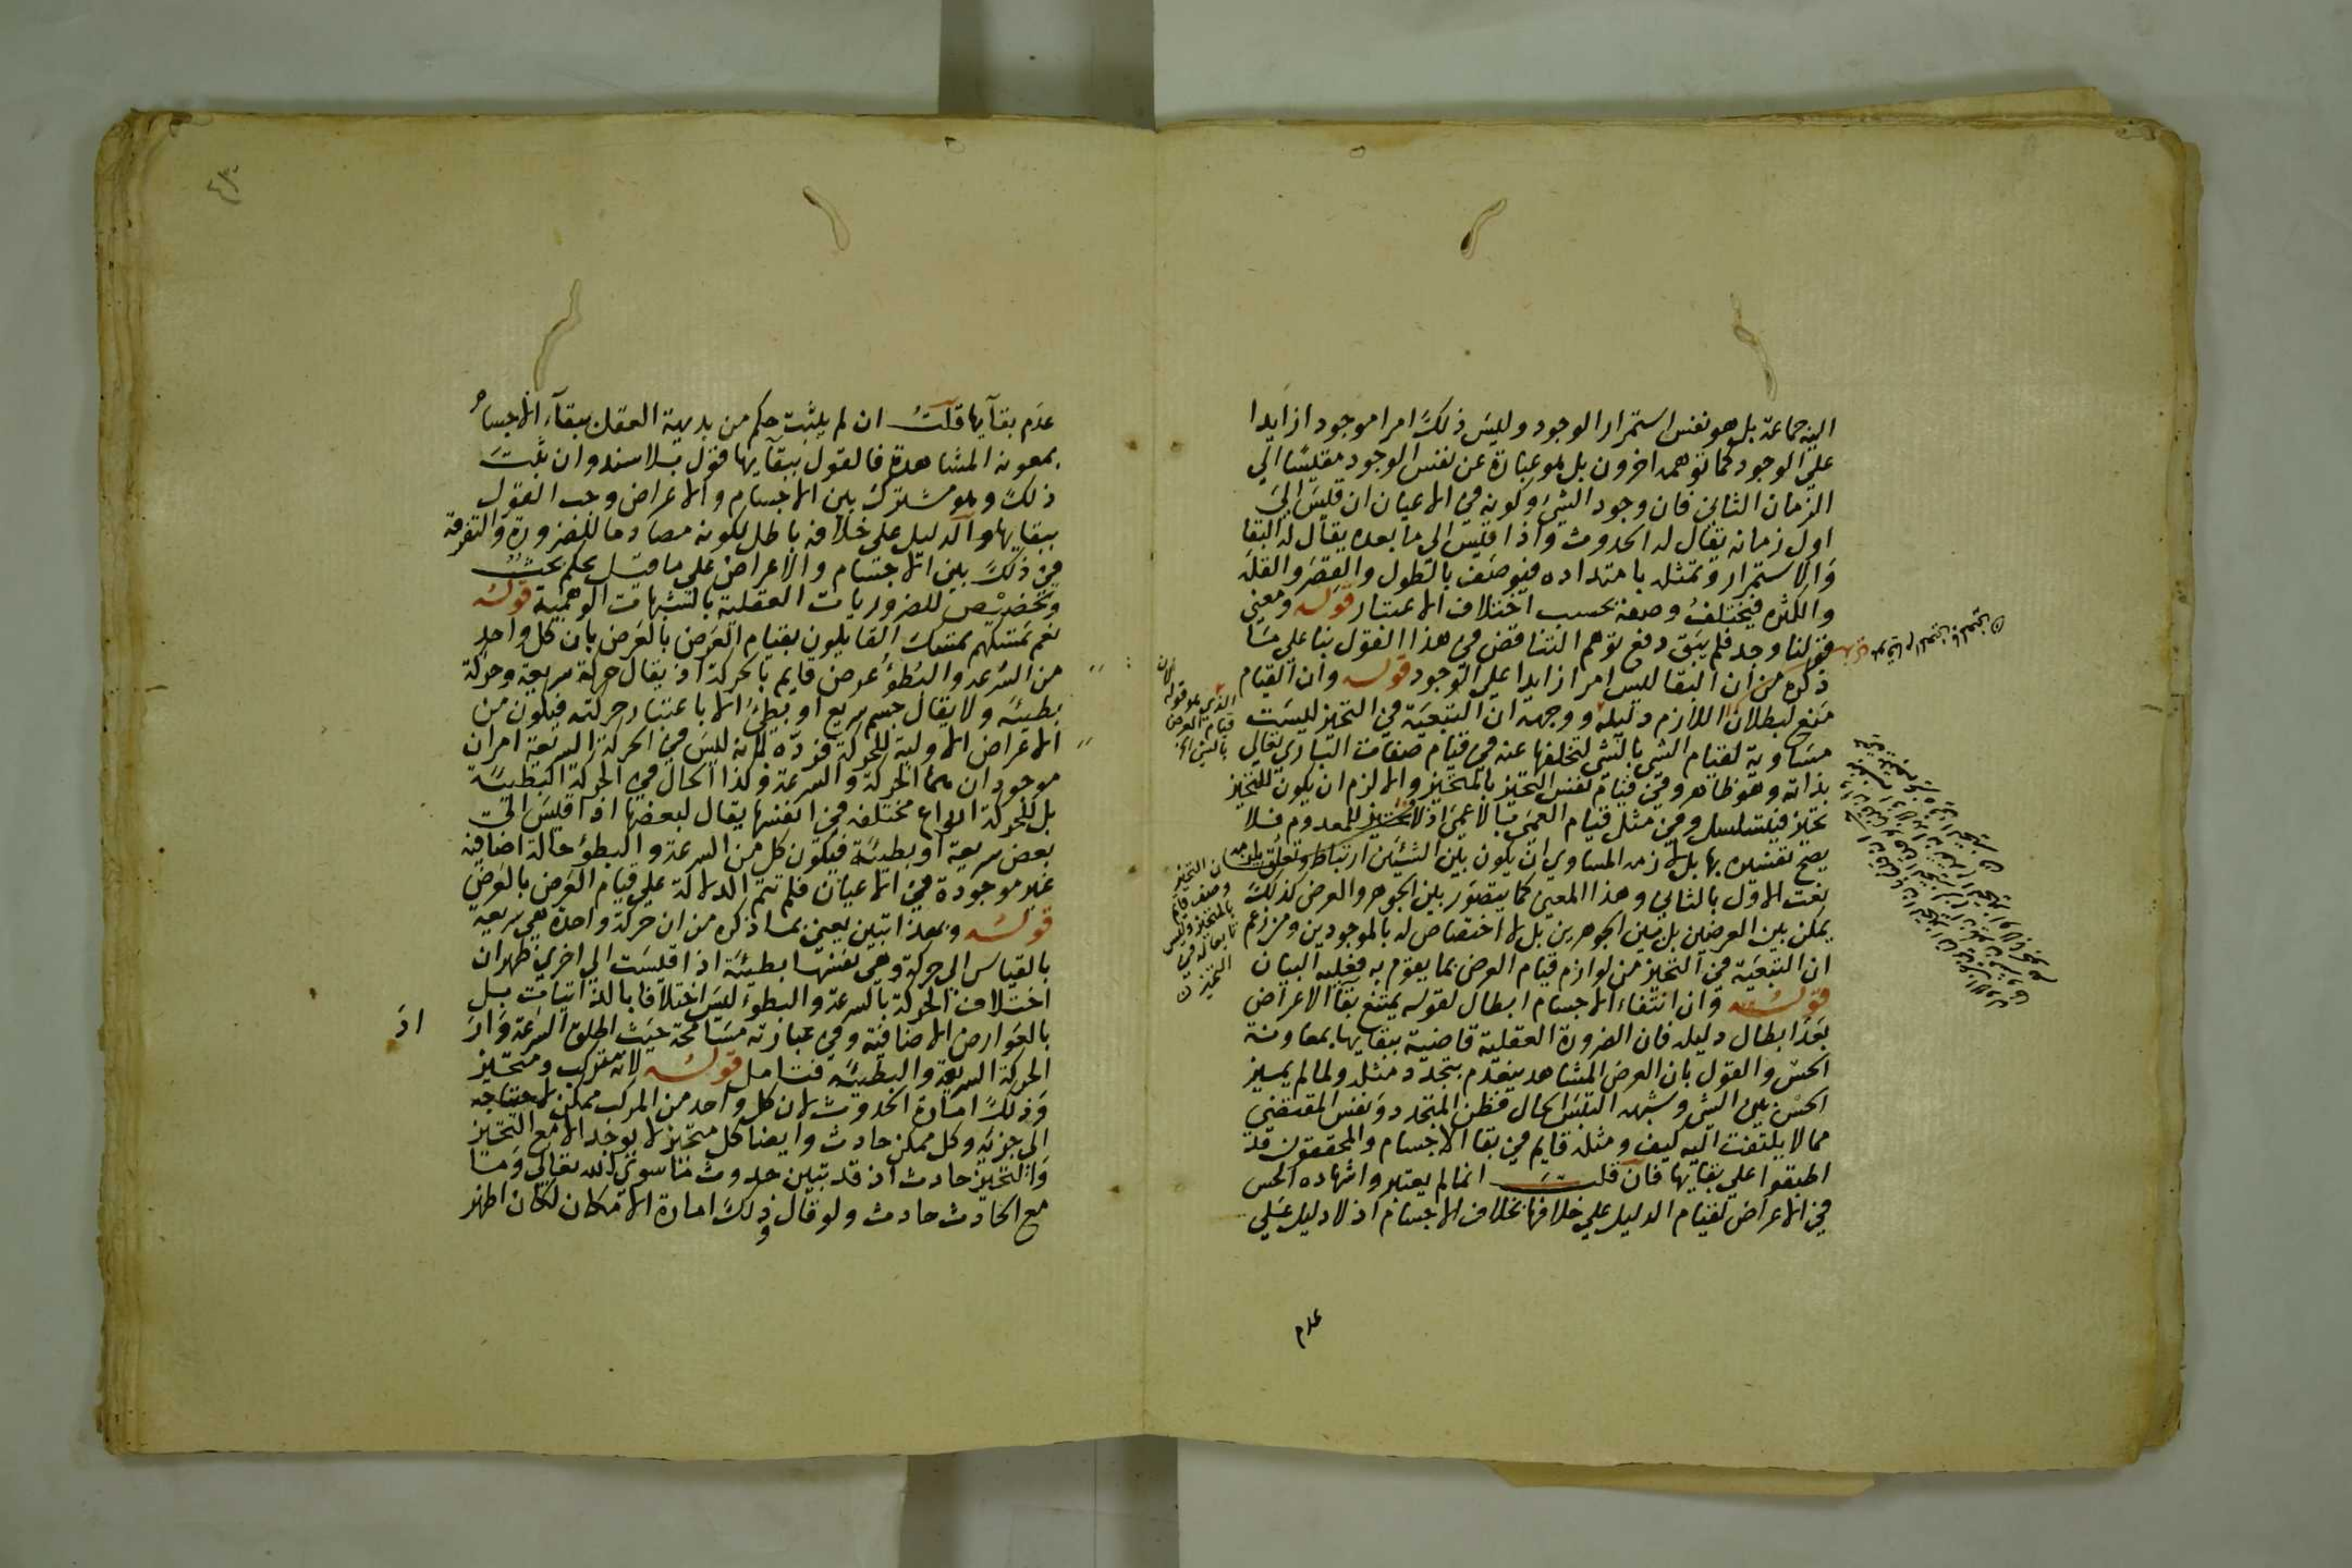 اليه جماعة بل هو نفس استمرار الوجود وليس ذلك امرا موجودا زايدا
علي الوجود كما توهمه اخرون بل هو عبارة عن نفس الوجود مقيسا الي
الزمان الثاني فان وجود الشي وكونه في الاعيان ان قيس الي
اول زمانه يقال له الحدوث واذا قيس الي ما بعده يقال له البقا
والاستمرار وتمثل بامتداده فيوصف بالطول والقصر والقلة
والكثرة فيختلف وصفه بحسب اختلاف الاعتبار قوله ومعني
قولنا وجد فلم يبق دفع توهم التناقض في هذا القول بنا علي ما
ذكره من ان البقا ليس امرا زايدا علي الوجود قوله وان القيام
منع لبطلان اللازم دليله ووجهه ان التبعية في التحيز ليست
مساوية لقيام الشي بالشي لتخلفها عنه في قيام صفات الباري تعالي
بذاته وهو ظاهر وفي قيام نفس التحيز بالمتحيز والا لزم ان يكون للتحيز
تحيز فيتسلسل وفي مثل قيام العمي بالاعمي اذ لا تحيز للمعدوم فلا
يصح تفسيره بها بل لازمه المساوي ان يكون بين الشيئين ارتباط وتعلق
نعت الاول بالثاني وهذا المعني كما يتصور بين الجوهر والعرض كذلك
يمكن بين العرضين بل بين الجوهرين بل لا اختصاص له بالموجودين ومن زعم
ان التبعية في التحيز من لوازم قيام العرض بما يقوم به فعليه البيان
قوله وان انتفاء الاجسام ابطال لقوله يمتنع بقا الاعراض
بعد ابطال دليله فان الضرورة العقلية قاضية ببقايها بمعاونة
الحس والقول بان العرض المشاهد ينعدم بتجدد مثله ولما لم يميز
الحس بين الشي وشبهه التبس الحال فظن المتجدد نفس المقتضي
مما لا يلتفت اليه كيف ومثله قايم في بقا الاجسام والمحققون قد
اطبقوا علي بقايها فان قلت انما لم يعتبروا شهادة الحس
في الاعراض لقيام الدليل علي خلافها بخلاف الاجسام اذ لا دليل علي
عدم
عدم بقايها قلت ان لم يثبت حكم من بديهة العقل ببقاء الاجسام
بمعونة المشاهدة فالقول ببقايها قول بلا سند وان ثبت
ذلك وهو مشترك بين الاجسام والاعراض وجب القول
ببقايها والدليل علي خلافه باطل لكونه مصادما للضرورة والتفرقة
في ذلك بين الاجسام والاعراض علي ما قيل تحكم بحت
وتخصيص للضروريات العقلية بالشبهات الوهمية قوله
نعم تمسكهم تمسك القايلون بقيام العرض بالعرض بان كل واحد
من السرعة والبطؤ عرض قايم بالحركة اذ يقال حركة سريعة وحركة
بطيئة ولا يقال جسم سريع او بطيء الا باعتبار حركته فيكون من
الاعراض الاولية للحركة فرده لانه ليس في الحركة السريعة امران
موجودان هما الحركة والسرعة وكذا الحال في الحركة البطيئة
بل للحركة انواع مختلفة في انفسها يقال لبعضها اذا قيس الي
بعض سريعة او بطيئة فيكون كل من السرعة والبطؤ حالة اضافية
غير موجودة في الاعيان فلم تتم الدلالة علي قيام العرض بالعرض
قوله وبهذا تبين يعني بما ذكره من ان حركة واحدة هي سريعة
بالقياس الي حركة وهي نفسها بطيئة اذا قيست الي اخري ظهر ان
اختلاف الحركة بالسرعة والبطوء ليس اختلافا بالذاتيات بل
بالعوارض الاضافية وفي عبارته مسامحة حيث اطلق السرعة واراد
الحركة السريعة والبطيئة فتامل قوله لانه مركب ومتحيز
وذلك امارة الحدوث لان كل واحد من المركب ممكن لاحتياجه
الي جزئه وكل ممكن حادث وايضا كل متحيز لا يوجد الا مع التحيز
والتحيز حادث اذ قد تبين حدوث ما سوي الله تعالي وما
مع الحادث حادث ولو قال وذلك امارة الامكان لكان اظهر